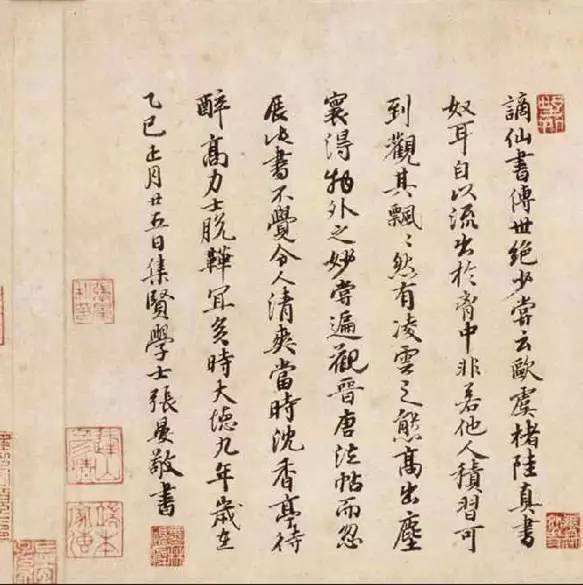 謫仙書傳世絕少嘗云歐虞褚陸真書
奴耳自以流出於胷中非若他人積習可
到觀其飄〻然有凌雲之態高出塵
寰得物外之妙嘗遍觀晉唐法帖而忽
展此書不覺令人清爽當時沈香亭待
醉高力士脫鞾冝矣時大徳九年歲在
乙巳正月廿五日集賢學士張晏敬書